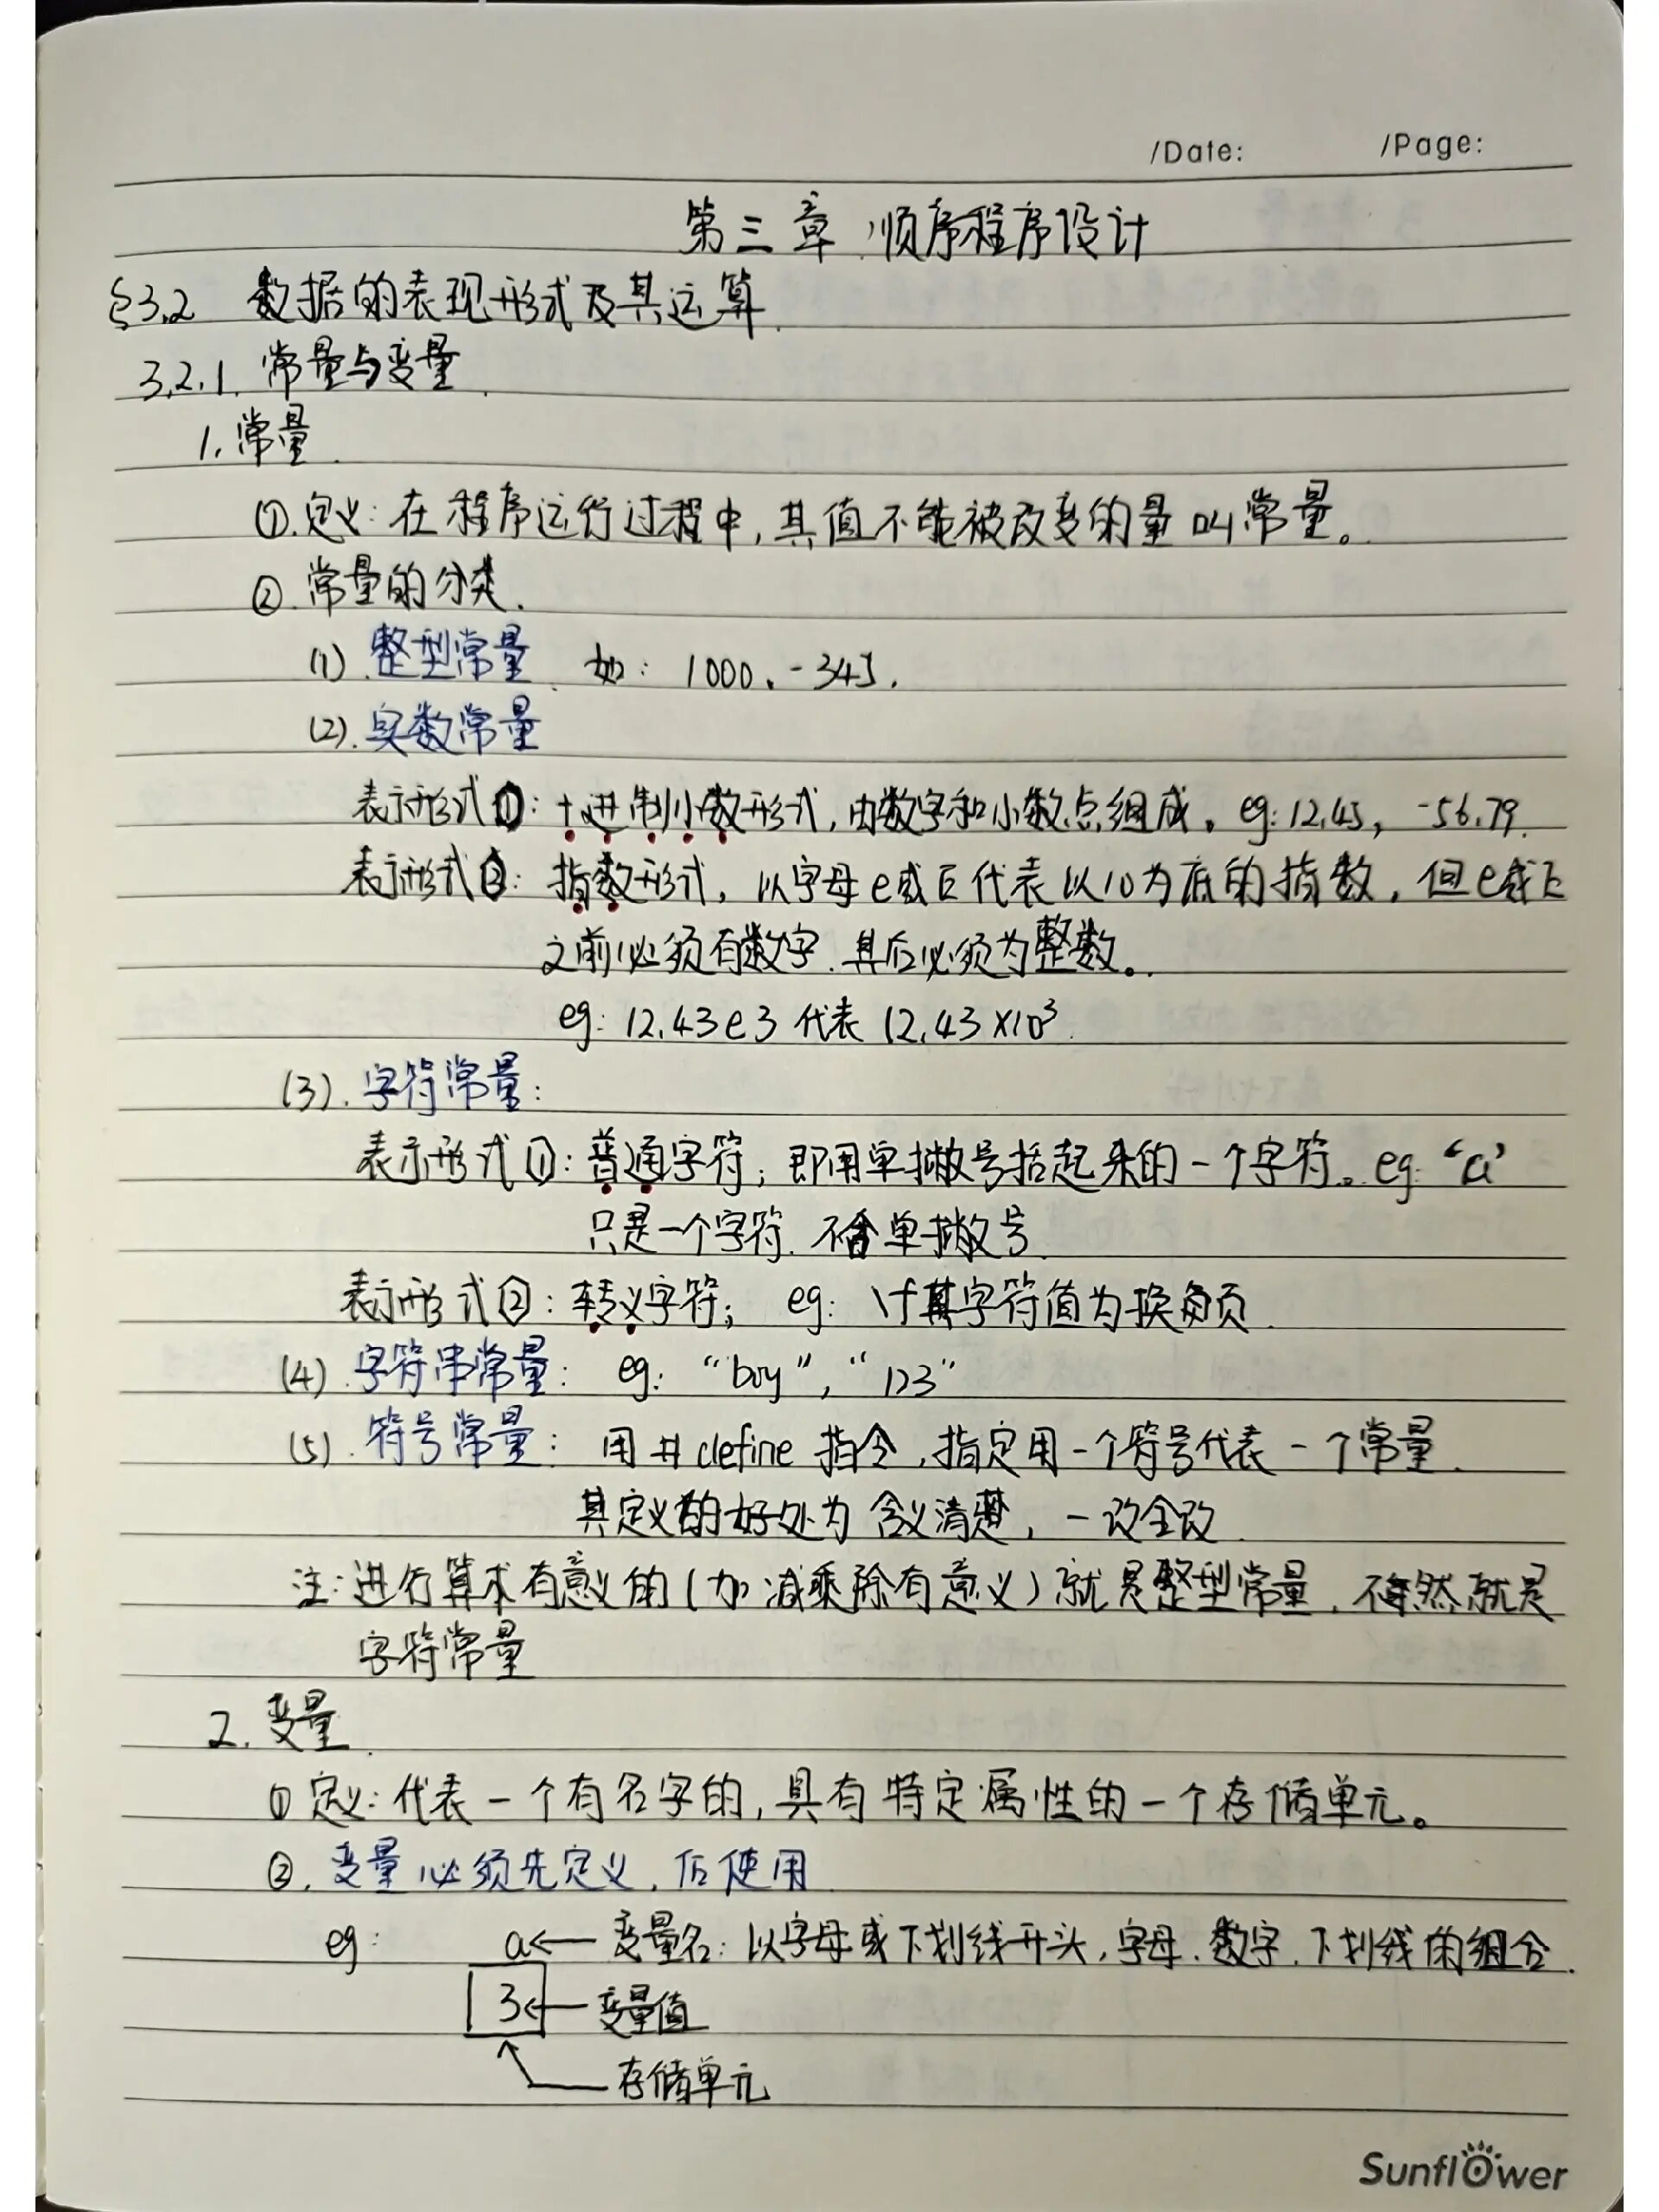 /Date: /Page:
第三章 顺序程序设计
§3.2 数据的表现形式及其运算.
3.2.1. 常量与变量.
1. 常量.
①.定义: 在程序运行过程中, 其值不能被改变的量叫常量。
②.常量的分类.
(1).整型常量. 如: 1000、-345.
(2).实数常量
表示形式①: 十进制小数形式, 由数字和小数点组成。eg: 12.45, -56.79.
表示形式②: 指数形式, 以字母e或E代表以10为底的指数, 但e或E
之前必须有数字.其后必须为整数。
eg: 12.43e3 代表 12.43×10³.
(3).字符常量:
表示形式①: 普通字符; 即用单撇号括起来的一个字符。eg: ‘a’
只是一个字符.不含单撇号.
表示形式②: 转义字符; eg: \f其字符值为换页.
(4).字符串常量: eg: “boy”, “123”
(5).符号常量: 用#define 指令,指定用一个符号代表一个常量.
其定义的好处为 含义清楚, 一改全改.
注: 进行算术有意义的(加减乘除有意义)就是整型常量, 不然就是
字符常量
2.变量.
①定义: 代表一个有名字的, 具有特定属性的一个存储单元。
②.变量必须先定义.后使用
eg: a← 变量名: 以字母或下划线开头, 字母.数字.下划线的组合.
3← 变量值
存储单元
Sunflower